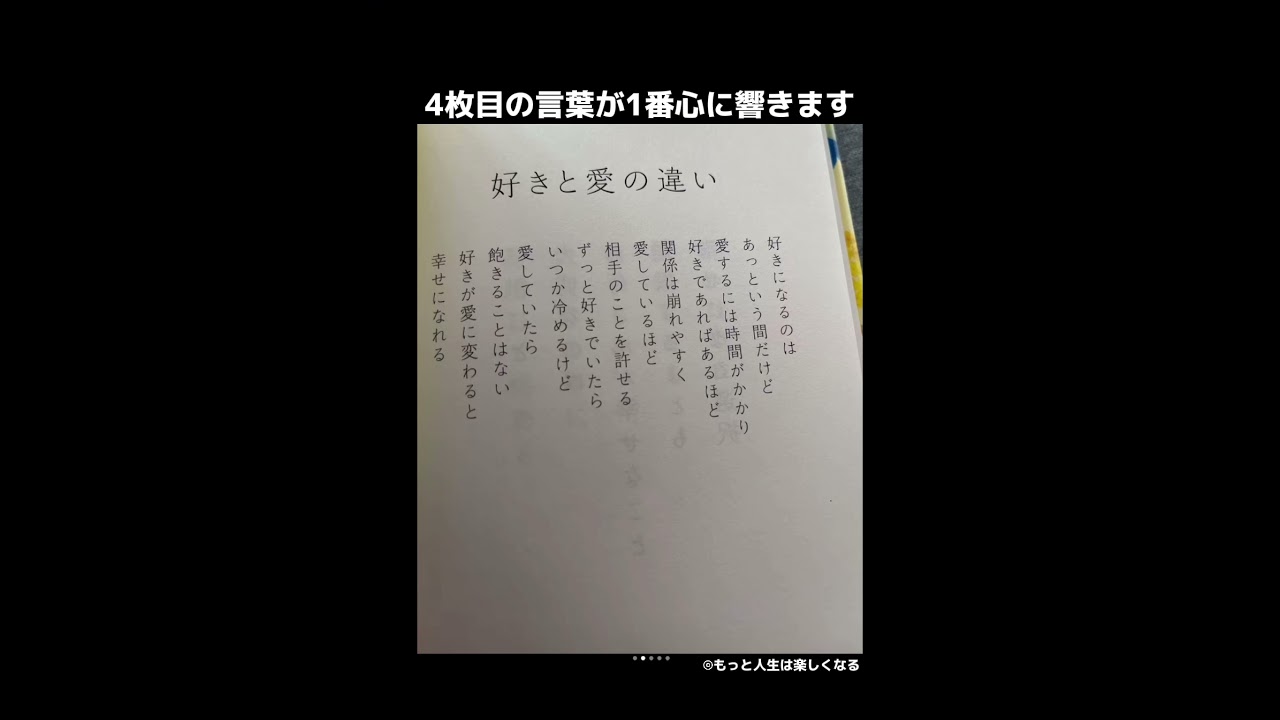 4枚目の言葉が1番心に響きます
好きと愛の違い
好きになるのは
あっという間だけど
愛するには時間がかかり
好きであればあるほど
関係は崩れやすく
愛しているほど
相手のことを許せる
ずっと好きでいたら
いつか冷めるけど
愛していたら
飽きることはない
好きが愛に変わると
幸せになれる
©もっと人生は楽しくなる